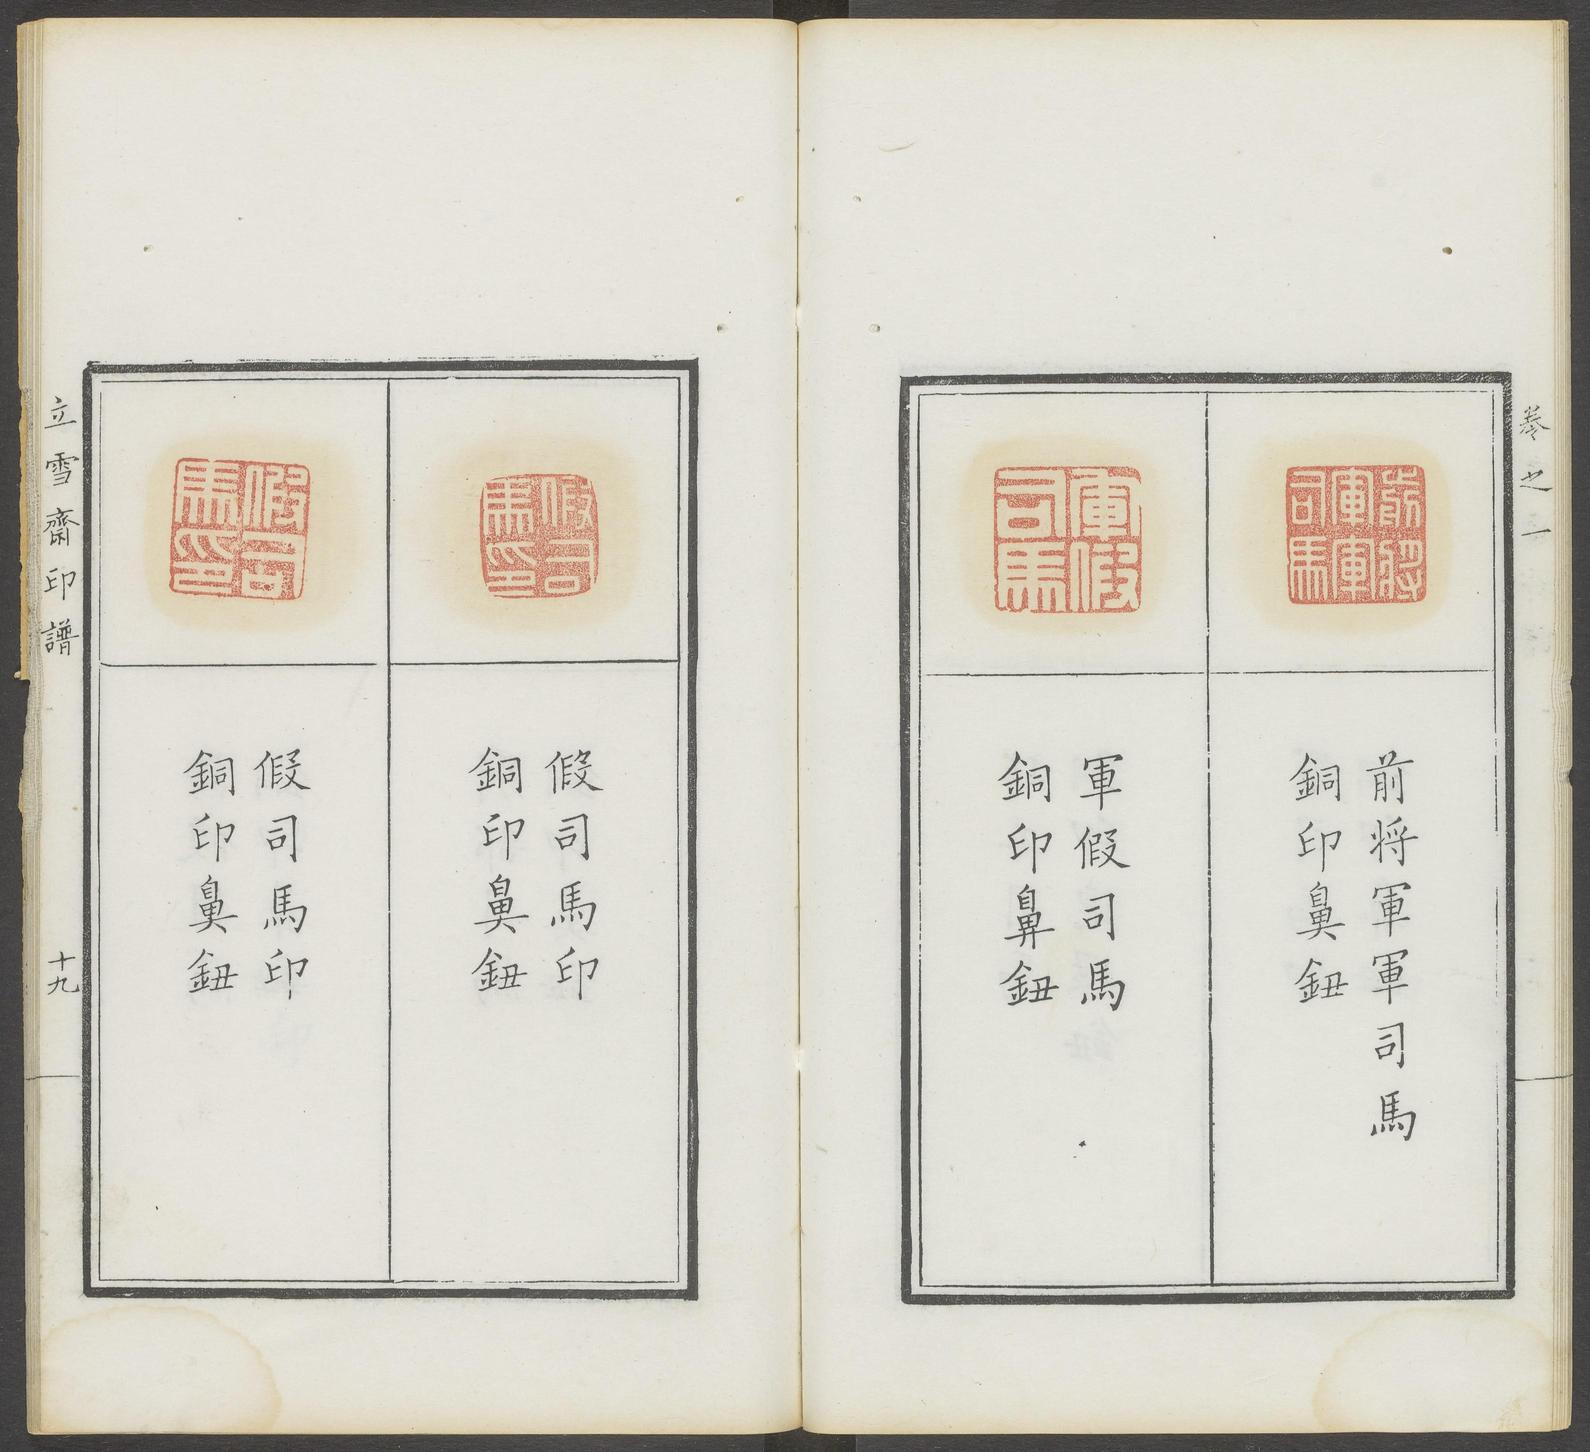 卷之一
前將軍軍司馬
前将軍軍司馬
銅印鼻鈕
軍假司馬
軍假司馬
銅印鼻鈕
假司馬印
假司馬印
銅印鼻鈕
假司馬印
假司馬印
銅印鼻鈕
立雪齋印譜
十九